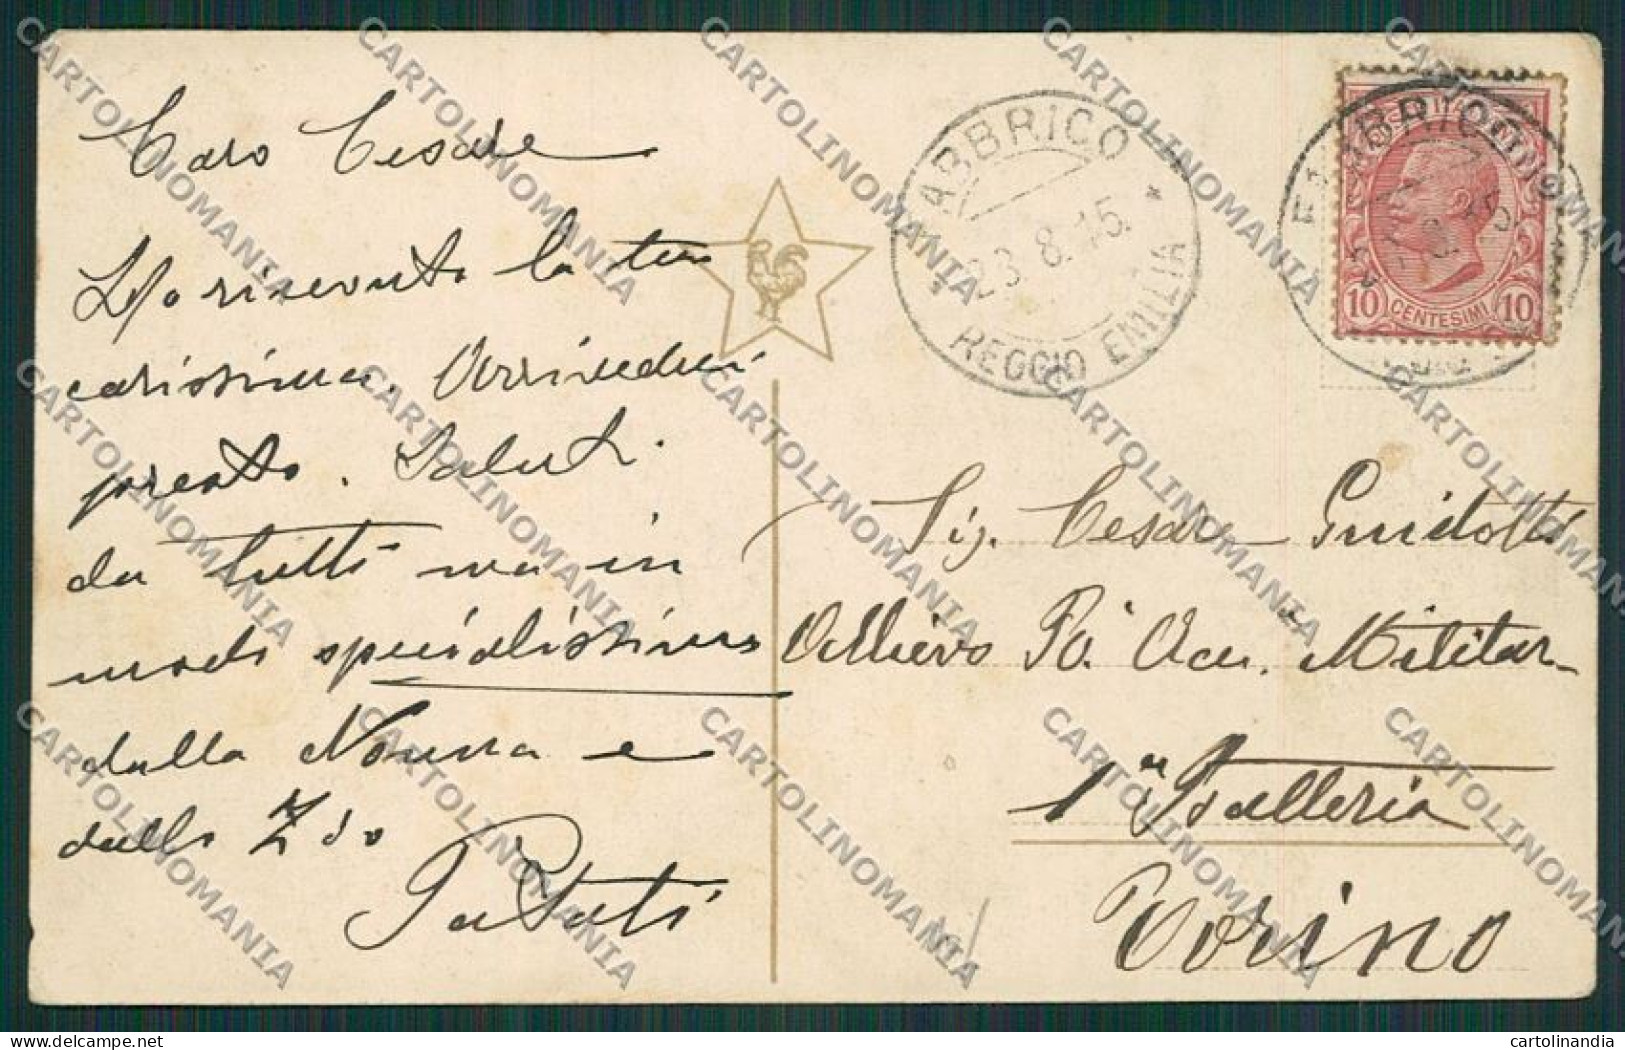 Caro Cesare
Ho ricevuto la tua
carissima. Arrivederci
presto. Saluti
da tutti ma in
modo specialissimo
dalla Nonna e
dallo Zio
FABBRICO
23.8.15
REGGIO EMILIA
FABBRICO
10 CENTESIMI 10
Sig. Cesare Guidotti
Allievo Ra. Acc. Militare
1a Batteria
Torino
CARTOLINOMANIA
cartolinandia